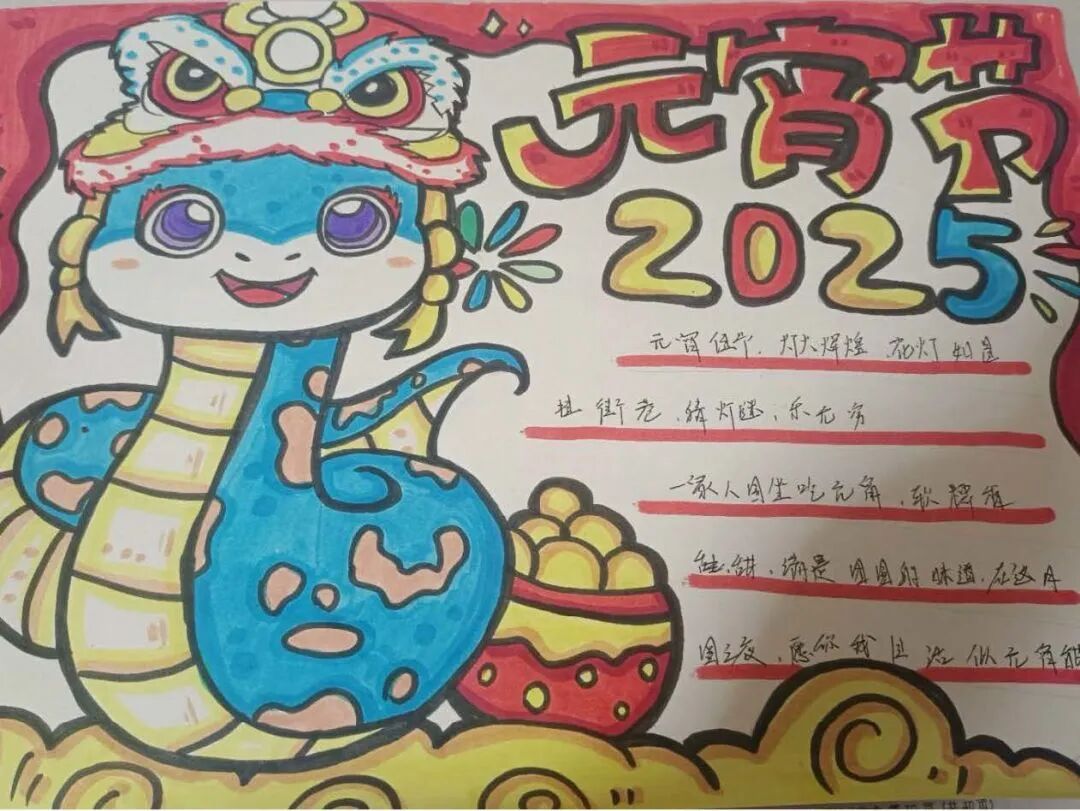 元宵节
2025
元宵佳节,灯火辉煌,花灯如昼
挂街巷,猜灯谜,乐无穷
一家人围坐吃元宵,软糯
甜,满是团圆的味道,在这月
圆之夜,愿你我生活似元宵